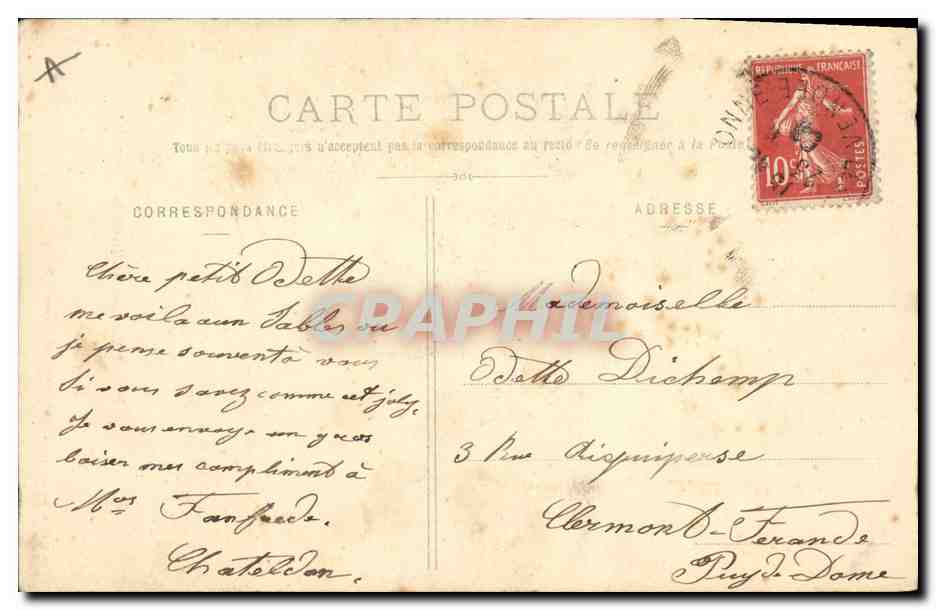 A
RÉPUBLIQUE FRANÇAISE
10c
POSTES
CARTE POSTALE
Tous les pays étrangers n'acceptent pas la correspondance au recto (Se renseigner à la Poste)
CORRESPONDANCE
Chère petit Odette
me voila aun Sables ou
je pense souvent à vous
Si vous savez comme cet joly,
Je vous envoye un gros
baiser mes compliment à
Mes Fanfrede.
Chateldon.
ADRESSE
Mademoiselle
Odette Dichamp
3 Rue
Clermont-Ferande
Puy de Dome
CRAPHIL